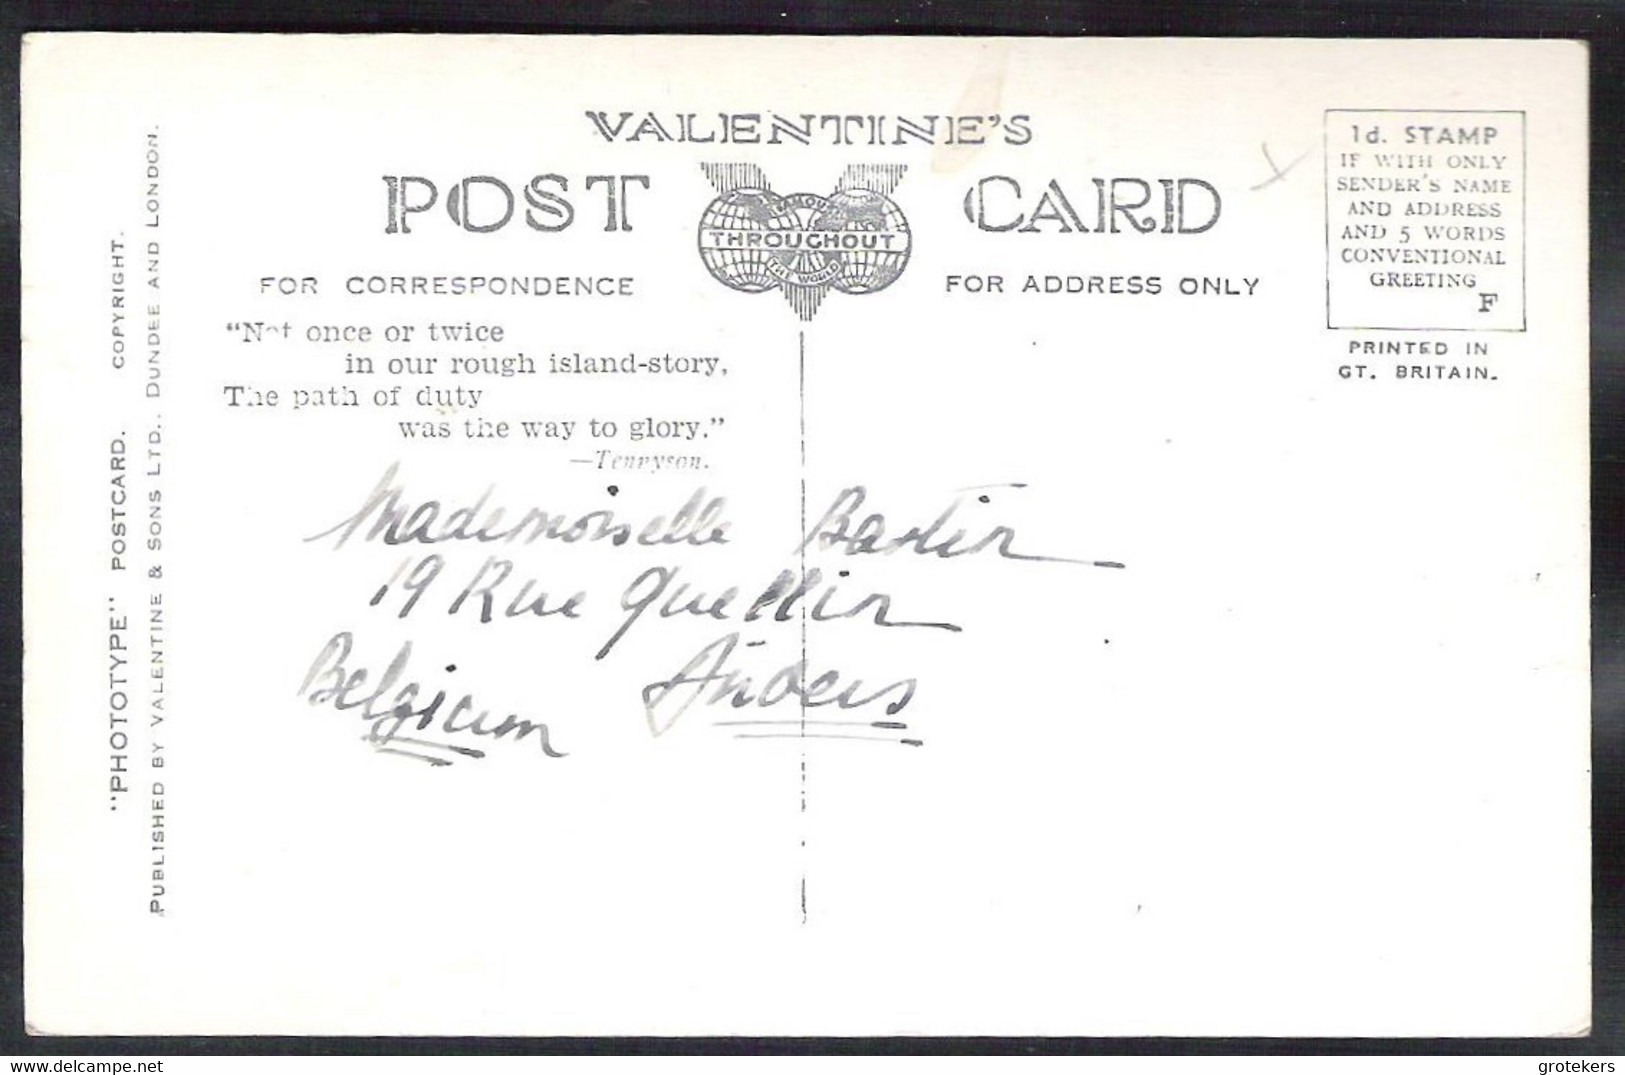 VALENTINE'S
POST CARD
FAMOUS
THROUGHOUT
THE WORLD
FOR CORRESPONDENCE
FOR ADDRESS ONLY
1d. STAMP
IF WITH ONLY
SENDER'S NAME
AND ADDRESS
AND 5 WORDS
CONVENTIONAL
GREETING
F
PRINTED IN
GT. BRITAIN.
"Not once or twice
in our rough island-story,
The path of duty
was the way to glory."
—Tennyson.
Mademoiselle Bastin
19 Rue Quellin
Belgicum
"PHOTOTYPE" POSTCARD. COPYRIGHT.
PUBLISHED BY VALENTINE & SONS LTD., DUNDEE AND LONDON.
grotekers